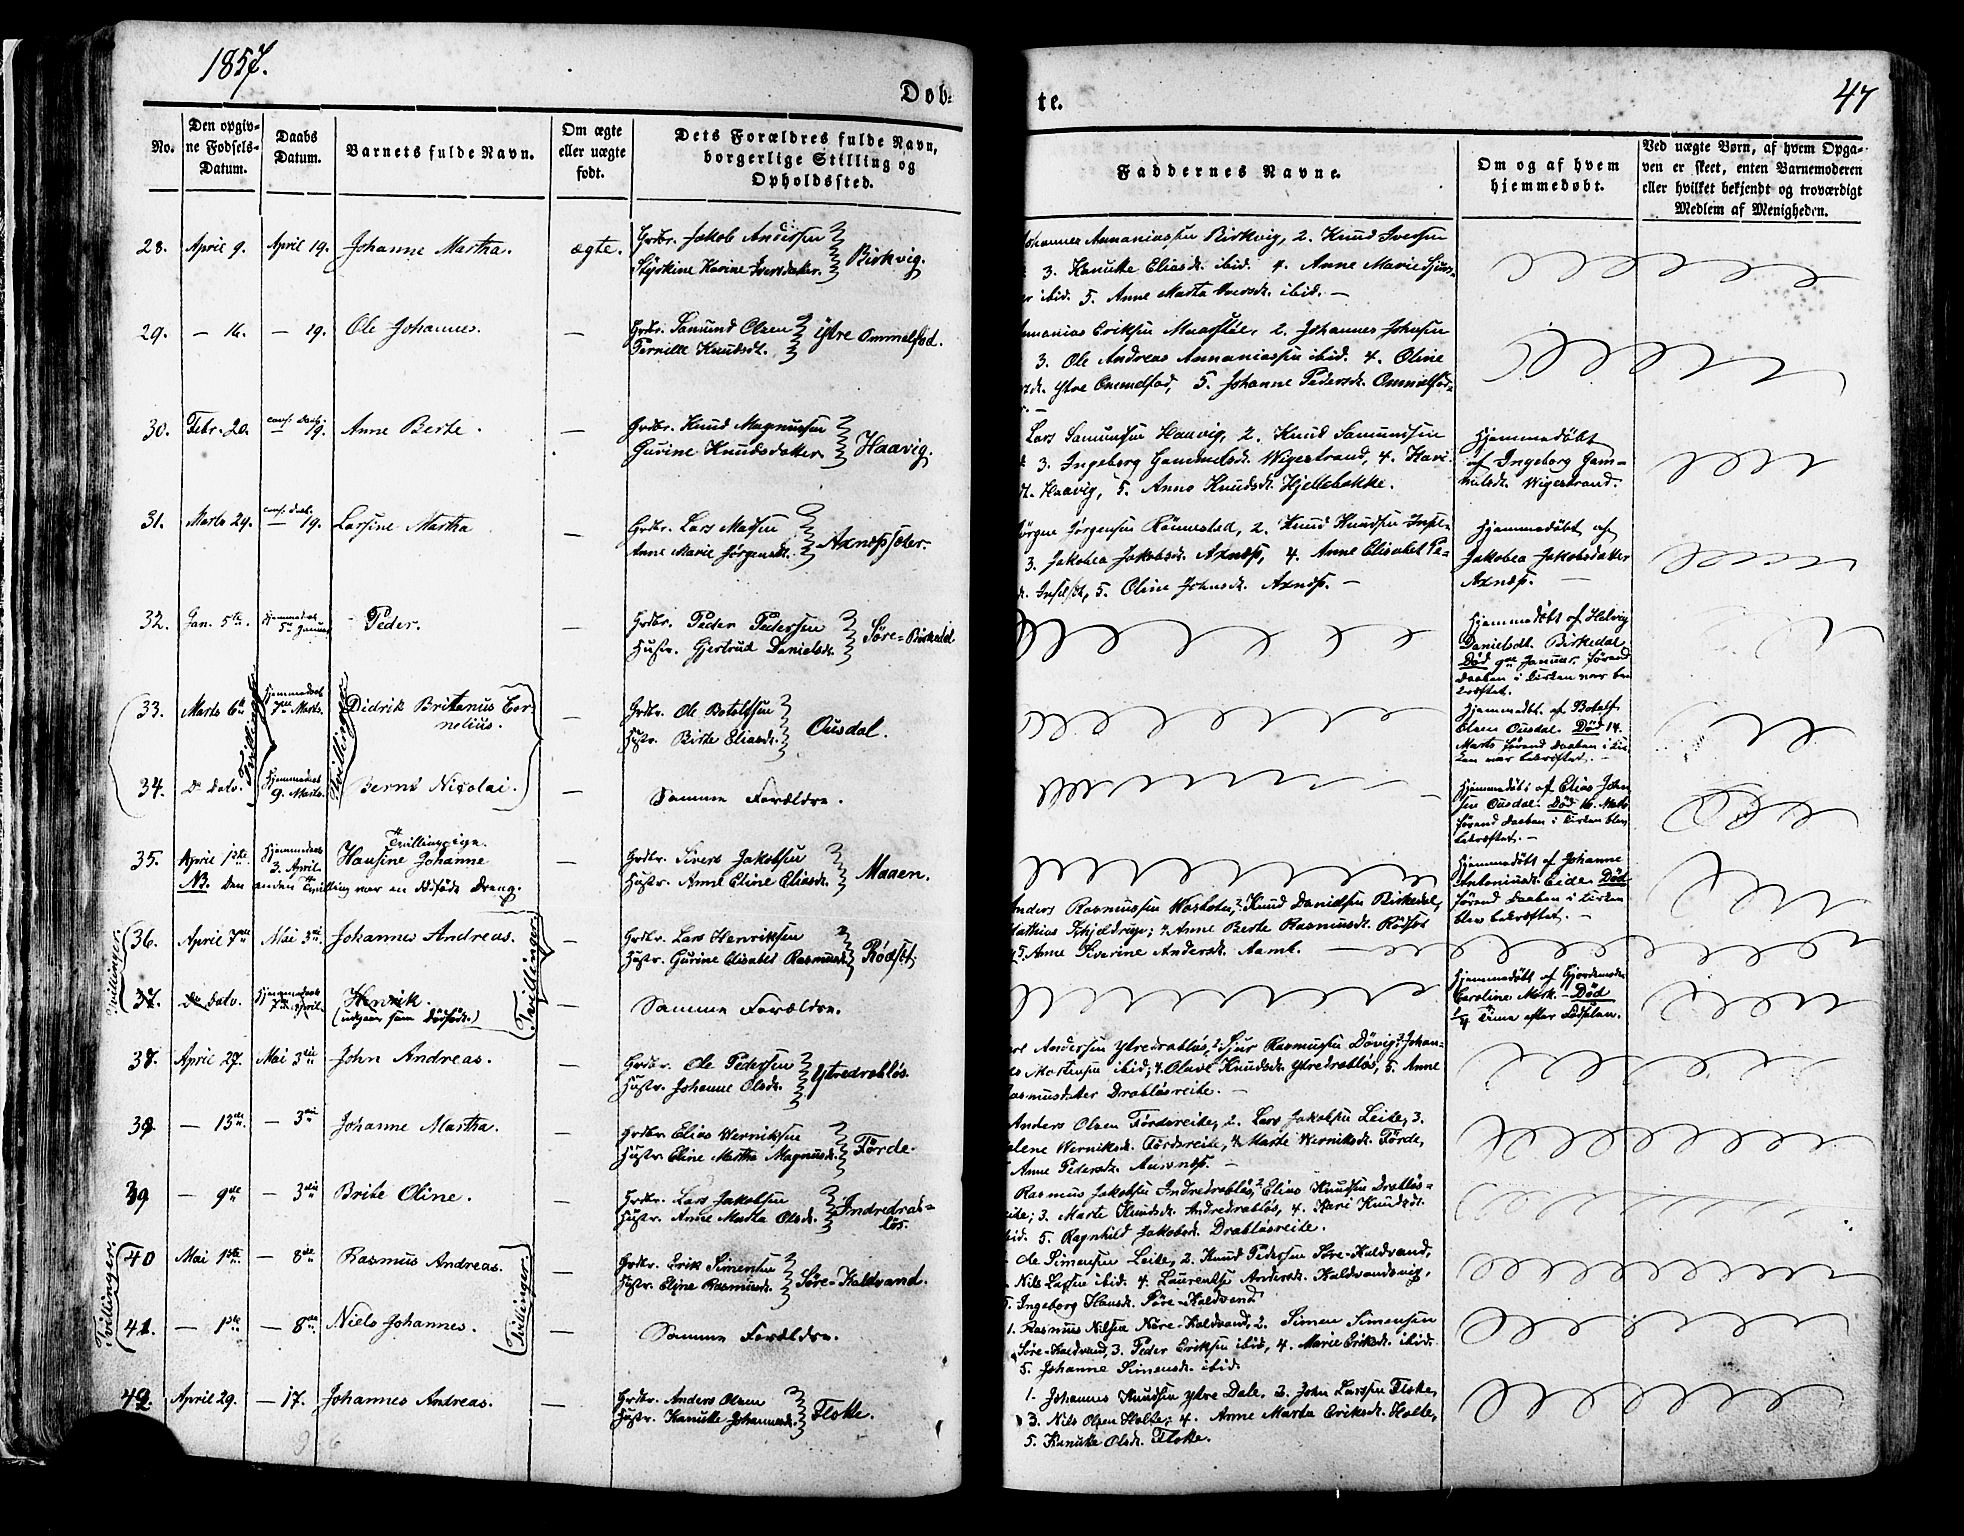 1857.
47
Døb-
te.
No.
Den opgiv-
ne Fødsels-
Datum.
Daabs
Datum.
Barnets fulde Navn.
Om ægte
eller uægte
født.
Dets Forældres fulde Navn,
borgerlige Stilling og
Opholdssted.
Faddernes Navne.
Om og af hvem
hjemmedøbt.
Ved uægte Børn, af hvem Opga-
ven er skeet, enten Barnemoderen
eller hvilket bekjendt og troværdigt
Medlem af Menigheden.
28. April 9. April 19. Johanne Martha. ægte. Grdbr. Jakob Andersen
Karine Iversdatter. Birkvig.
Johannes Annaniassen Birkvig, 2. Knud Iversen
3. Hanukke Eliasdt. ibid. 4. Anne Marie
ibid. 5. Anne Marta Iversdt. ibid. —
29. — 16. — 19. Ole Johannes. — Grdbr. Samund Olsen
Pernille Knudsdt. Ytre Ommelstad.
Annanias Eriksen 2. Johannes Johnsen
3. Ole Andreas Annaniassen ibid. 4. Oline
Ytre Ommelstad, 5. Johanne Pedersdt. Ommelstad
30. Febr. 20. conf. Daab. 19. Anne Berte. — Grdbr. Knud Magnussen
Gurine Knudsdatter Haavig.
Lars Samunsen Haavig, 2. Knud Samundsen
3. Ingeborg Gammelsdt. Wigestrand, 4. Kari
Haavig, 5. Anne Knudsdt. Hjellebakke.
Hjemmedøbt
af Ingeborg Gam-
melsdt. Wigestrand.
31. Marts 29. conf. Daab. 19. Larsine Martha — Grdbr. Lars Madsen
Anne Marie Jørgensdt. Axnessæter.
Jørgen Jørgensen Rønnestad, 2. Knud Knudsen
3. Jakobea Jakobsdt. Axness, 4. Anne Elisabet Pe-
5. Oline Johnsdt. Axness. —
Hjemmedøbt af
Jakobea Jakobsdatter
Axness. —
32. Jan. 5te Hjemmedøbt 5te Januar Peder. — Grdbr. Peder Pedersen
Hustr. Gjertrud Danielsdt. Søre-Birkedal
Hjemmedøbt af Helvig
Danielsdt. Birkedal
Død 9de Januar. førend
Daaben i Kirken var be
kræftet.
33. Marts 6te Hjemmedøbt 7de Marts. Didrik Britanus Cor-
nelius. — Grdbr. Ole Botolfsen
Hustr. Birte Eliasdt. Ousdal.
Hjemmedøbt af Botolf
Olsen Ousdal. Død 14.
Marts førend Daaben i Kir
ken var bekræftet. —
Tvillinger
Tvillinger
34. Do Dato. Hjemmedøbt 9. Marts. Bernt Nicolai. — Samme Forældre.
Hjemmedøbt af Elias John
sen Ousdal. Død 16. Marts
førend Daaben i Kirken blev
bekræftet. —
Tvillingpige.
35. April 1ste Hjemmedøbt 3. April. Hansine Johanne — Grdbr. Sivert Jakobsen
Hustr. Anne Eline Eliasdt. Maaen.
NB. Den anden Tvilling var en dødfødt Dreng.
Hjemmedøbt af Johanne
Antoniusdt. Eide. Død
førend Daaben i Kirken
blev bekræftet. —
36. April 7de Mai 3die Johannes Andreas. — Grdbr. Lars Henriksen
Hustr. Gurine Elisabet Rasmusdt. Rødsæt.
Anders Rasmussen 2. Knud Danielsen Birkedal,
Mathias 4. Anne Berte Rasmusdt. Rødsæt
5. Anne Siverine Andersdt. Aamt. —
Tvillinger.
37. Do Dato. Hjemmedøbt 7de April. Henrik.
(udgaar som dødfødt.) — Samme Forældre.
Tvillinger.
Hjemmedøbt af Gjordemoder
Caroline Mork. — Død
1/4 Time efter Fødselen.
37. April 27. Mai 3die John Andreas. — Grdbr. Ole Pedersen
Hustr. Johanne Olsdt. Ytredrabløs.
Andersen Ytredrabløs, 2. Sjur Rasmussen Døvig, 3. Johan-
Mortensen ibid; 4. Olave Knudsdt. Ytredrabløs, 5. Anne
Rasmusdatter Drabløsreite. —
38 — 13de — 3die Johanne Martha. — Grdbr. Elias Werniksen
Hustr. Eline Martha Magnusdt. Førde.
Anders Olsen Førdsreite, 2. Lars Jakobsen Leite, 3.
Werniksdt. Førdsreite, 4. Marte Werniksdt. Førde,
Anne Pedersdt. —
39 — 9de — 3die Brite Oline. — Grdbr. Lars Jakobsen
Hustr. Anne Marta Olsdt. Indredrab-
løs.
Rasmus Jakobsen Indredrabløs, 2. Elias Knudsen Drabløs-
reite; 3. Marte Knudsdt. Indredrabløs, 4. Kari Knudsdt.
ibid. 5. Ragnhild Jakobsdt. Drabløsreite.
40 Mai 1ste — 8de Rasmus Andreas. — Grdbr. Erik Simensen
Hustr. Eline Rasmusdt. Søre-Kaldvand.
Ole Simensen Leite, 2. Knud Pedersen Søre-Kaldvand,
Nils Larsen ibid. 4. Laurentse Andersdt. Kaldvandsvig,
5. Ingeborg Hansdt. Søre-Kaldvand
Tvillinger.
41. — 1ste — 8de Niels Johannes. — Samme Forældre.
Tvillinger.
1. Rasmus Nilsen Nøre-Kaldvand, 2. Simen Simensen
Søre-Kaldvand, 3. Peder Eriksen ibid, 4. Marie Eriksdt. ibid.
5. Johanne Simensdt. ibid.
42. April 29. — 17. Johannes Andreas. — Grdbr. Anders Olsen
Hustr. Hanukke Johannesdt. Flotte.
1. Johannes Knudsen Ytre Dale, 2. John Larssen Flotte,
3. Nils Olsen Holte, 4. Anne Marta Eriksdt. Holte,
5. Hanukke Olsdt. Flotte.